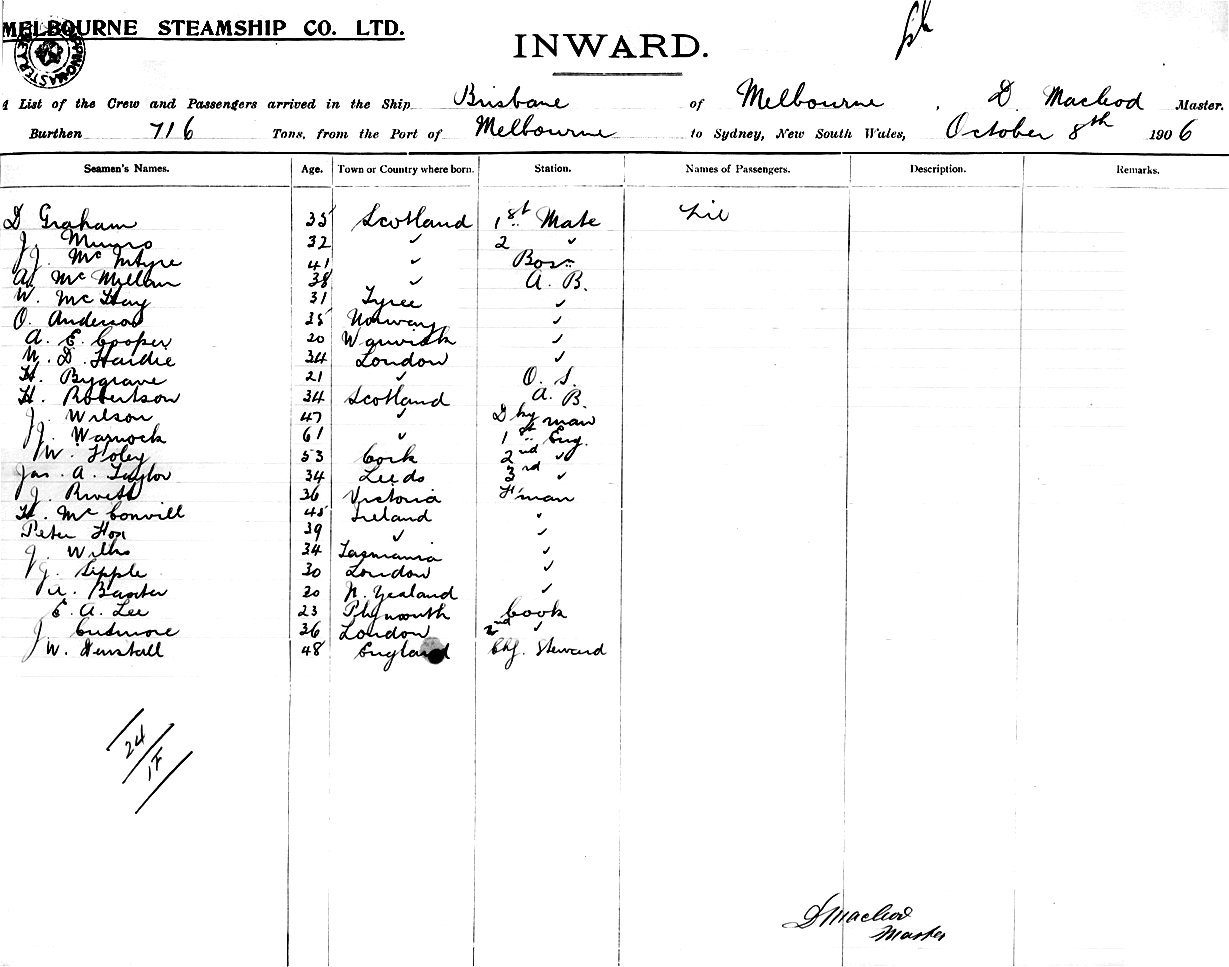 MELBOURNE STEAMSHIP CO. LTD.
INWARD.
A List of the Crew and Passengers arrived in the Ship Brisbane of Melbourne, D. Macleod Master.
Burthen 716 Tons, from the Port of Melbourne to Sydney, New South Wales, October 8th 1906
Seamen's Names. Age. Town or Country where born. Station. Names of Passengers. Description. Remarks.
D Graham 35 Scotland 1st Mate Nil
J. Munro 32 ✓ 2 ✓
J. McIntyre 41 ✓ Bosn
A McMillan 38 ✓ A. B.
W. McHay 31 Tyree ✓
O. Anderson 35 Norway ✓
A. E. Cooper 20 ✓
N. D. Hardie 34 London ✓
H. Bygrave 21 ✓ O. S.
H. Robertson 34 Scotland A. B.
J. Wilson 47 ✓ Dky man
J. Warnock 61 ✓ 1st Eng.
W. Foley 53 Cork 2nd ✓
Jas. A. Taylor 34 Leeds 3rd ✓
J. 36 Victoria F'man
H. McConvill 45 Ireland ✓
Peter 39 ✓ ✓
J. 34 Tasmania ✓
J. Sipple 30 London ✓
A. Baxter 20 N. Zealand ✓
E. A. Lee 23 Plymouth Cook
J. Cudmore 36 London 2nd ✓
W. 48 England Chf. Steward
24
1F
D Macleod
Master